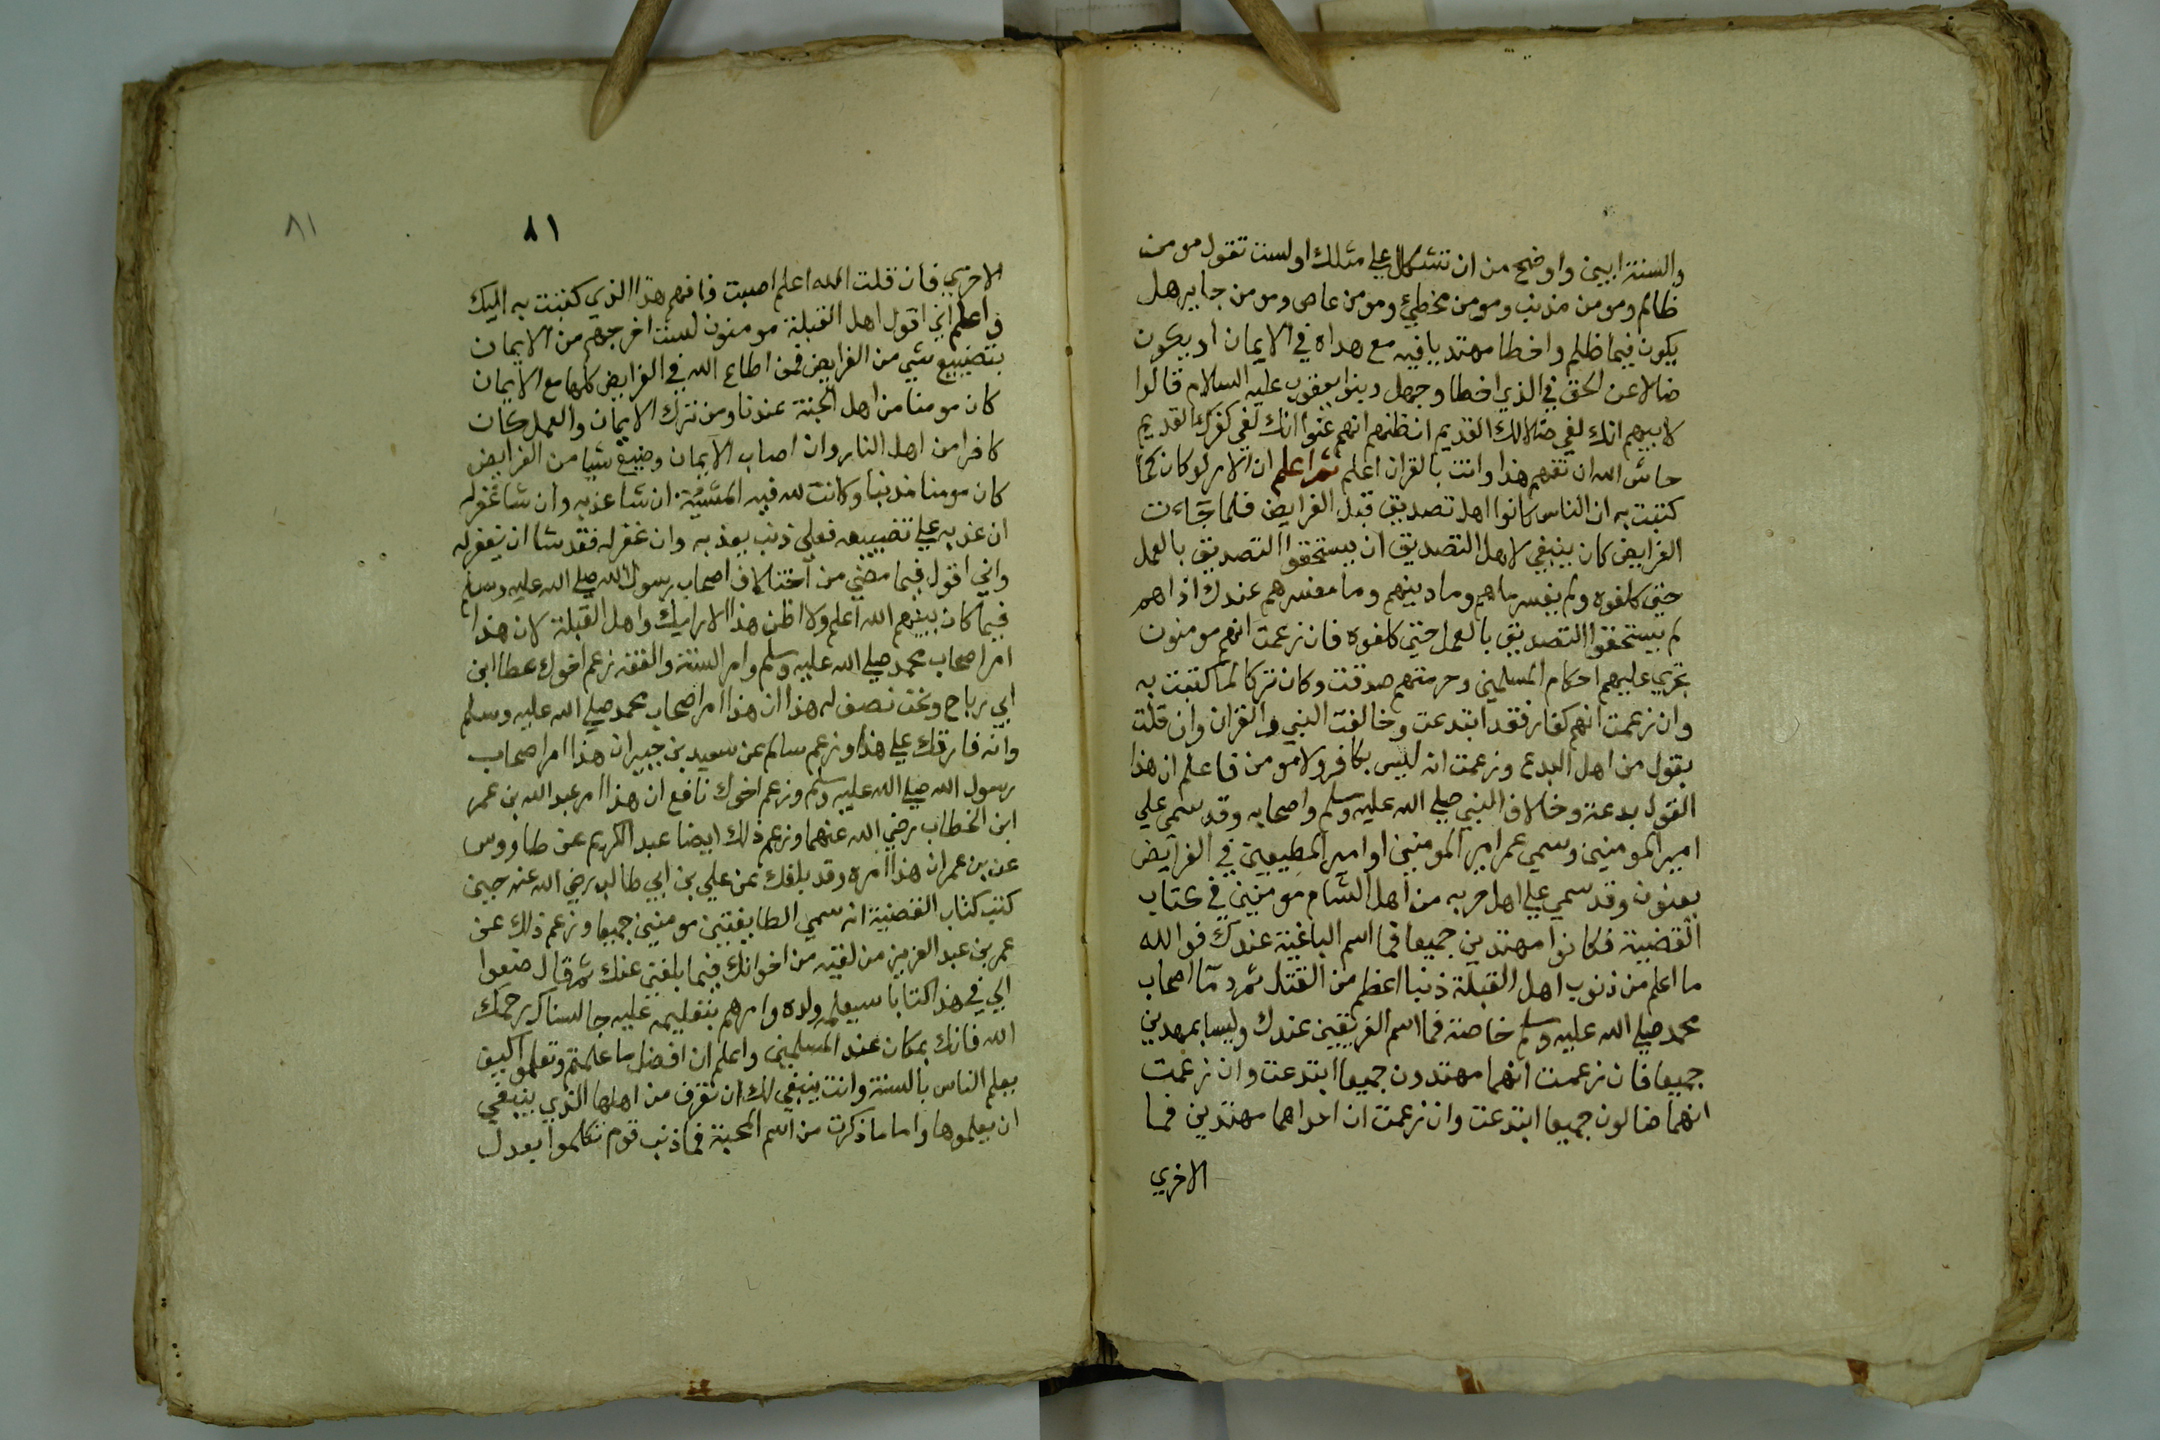 والسنة ابين واوضح من ان تشكل علي مثلك او لست تقول مومن
ظالم ومومن مذنب ومومن مخطي ومومن عاص ومومن جاير هل
يكون فيما ظلم واخطا مهتديا فيه مع هداه في الايمان او يكون
ضالا عن الحق في الذي اخطا وجهل وبنوا يعقوب عليه السلام قالوا
لابيهم انك لفي ضلالك القديم اتظنهم انهم عنوا انك لفي كفرك القديم
حاش الله ان تفهم هذا وانت بالقران اعلم ثم اعلم ان الامر لو كان كما
كتبت به ان الناس كانوا اهل تصديق قبل الفرايض فلما جاءت
الفرايض كان ينبغي لاهل التصديق ان يستحقوا التصديق بالعمل
حتي كلفوه ولم يفسر ماهم وما دينهم وما مفسرهم عندك اذا هم
لم يستحقوا التصديق بالعمل حتي كلفوه فان زعمت انهم مومنون
تجري عليهم احكام المسلمين وحرمتهم صدقت وكان تركا لما كتبت به
وان زعمت انهم كفار فقد ابتدعت وخالفت النبي والقران وان قلت
بقول من اهل البدع وزعمت انه ليس بكافر ولا مومن فاعلم ان هذا
القول بدعة وخلاف النبي صلي الله عليه وسلم واصحابه وقد سمي علي
امير المومنين وسمي عمر امير المومنين او امير المطيعين في الفرايض
يعنون وقد سمي علي اهل حربه من اهل الشام مومنين في كتاب
القضية فكانوا مهتدين جميعا فما اسم الباغية عندك فوالله
ما اعلم من ذنوب اهل القبلة ذنبا اعظم من القتل ثم دما اصحاب
محمد صلي الله عليه وسلم خاصة فما اسم الفريقين عندك وليسا بمهدين
جميعا فان زعمت انهما مهتدون جميعا ابتدعت وان زعمت
انهما ضالون جميعا ابتدعت وان زعمت ان احداهما مهتدين فما
الاخري
٨١
٨١
الاخري فان قلت الله اعلم اصبت فافهم هذا الذي كتبت به اليك
واعلم اني اقول اهل القبلة مومنون لست اخرجهم من الايمان
بتضييع شي من الفرايض فمن اطاع الله في الفرايض كلها مع الايمان
كان مومنا من اهل الجنة عندنا ومن ترك الايمان والعمل كان
كافرا من اهل النار وان اصاب الايمان وضيع شيا من الفرايض
كان مومنا مذنبا وكانت لله فيه المشيئة ان شا عذبه وان شا غفر له
ان عذبه علي تضييعه فعلي ذنب يعذبه وان غفر له فقد شا ان يغفر له
واني اقول فيما مضي من اختلاف اصحاب رسول الله صلي الله عليه وسلم
فيما كان بينهم الله اعلم ولا اظن هذا الا رايك واهل القبلة لان هذا
امر اصحاب محمد صلي الله عليه وسلم وامر السنة والفقه زعم اخوك عطا ابن
ابي رباح ونحن نصف له هذا ان هذا امر اصحاب محمد صلي الله عليه وسلم
وانه فارقك علي هذا وزعم سالم عن سعيد بن جبير ان هذا امر اصحاب
رسول الله صلي الله عليه وسلم وزعم اخوك نافع ان هذا امر عبد الله بن عمر
ابن الخطاب رضي الله عنهما وزعم ذلك ايضا عبد الكريم عن طاووس
عن بن عمر ان هذا امره وقد بلغك عن علي بن ابي طالب رضي الله عنه حين
كتب كتاب القضية انه سمي الطايفتين مومنين جميعا وزعم ذلك عن
عمر بن عبد العزيز من لقيه من اخوانك فيما بلغني عنك ثم قال ضعوا
الي في هذا كتابا سيعلمه ولده وامرهم بتعليمه عليه جالسناك رحمك
الله فانك بمكان عند المسلمين واعلم ان افضل ما علمتم وتعلموا
يعلم الناس بالسنة وانت ينبغي لك ان تعرف من اهلها الذي ينبغي
ان يعلموها واما ما ذكرت من اسم المحبة فما ذنب قوم تكلموا بعدل